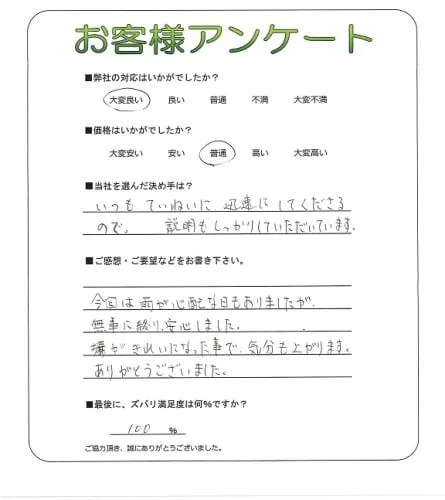 お客様アンケート
■弊社の対応はいかがでしたか?
大変良い 良い 普通 不満 大変不満
■価格はいかがでしたか?
大変安い 安い 普通 高い 大変高い
■当社を選んだ決め手は?
いつも ていねいに 迅速に してくださる
ので。 説明もしっかりしていただいています。
■ご感想・ご要望などをお書き下さい。
今回は雨が心配な日もありましたが、
無事に終り、安心しました。
塀がきれいになった事で、気分も上がります。
ありがとうございました。
■最後に、ズバリ満足度は何%ですか?
100 %
ご協力頂き、誠にありがとうございました。